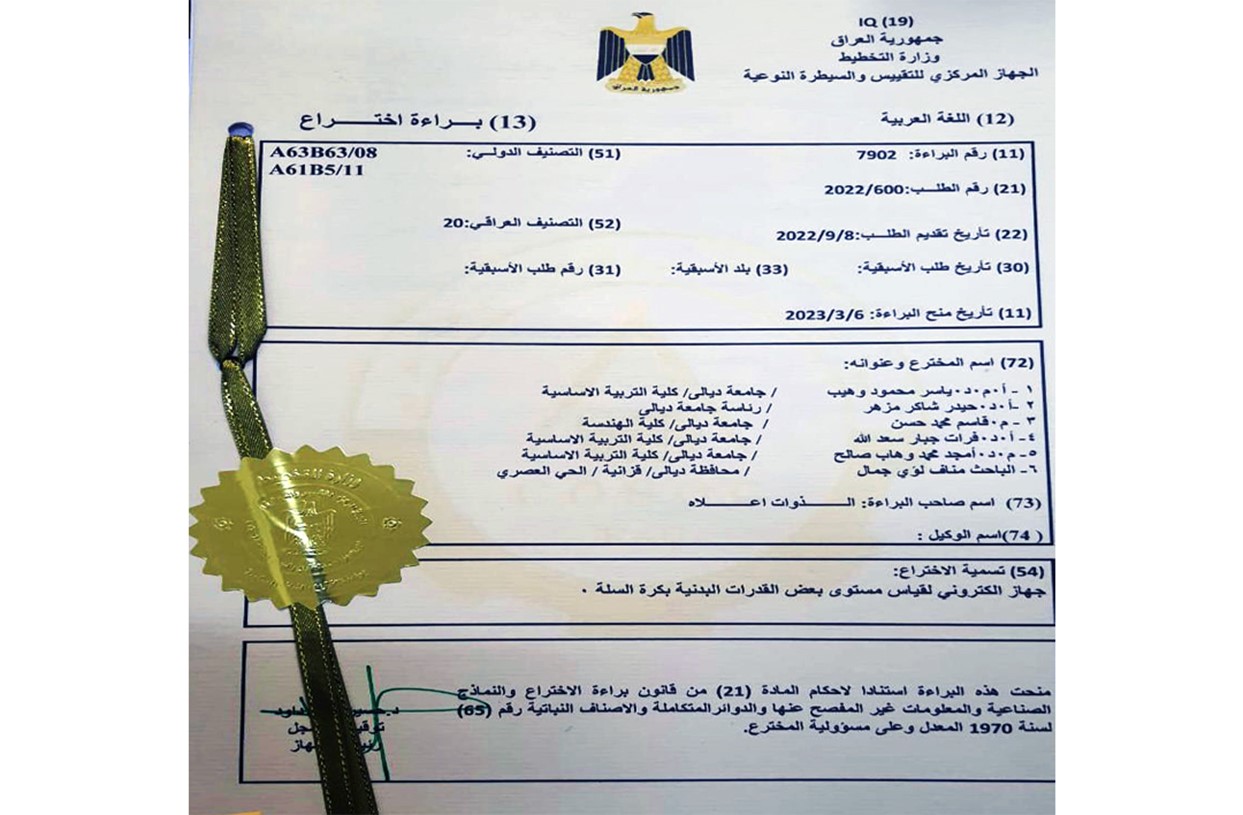 IQ (19)
جمهورية العراق
وزارة التخطيط
الجهاز المركزي للتقييس والسيطرة النوعية
جمهورية العراق
(12) اللغة العربية
(13) بـــراءة اختـــــراع
(11) رقم البراءة: 7902
(51) التصنيف الدولي: A63B63/08
A61B5/11
(21) رقم الطلـــب:2022/600
(52) التصنيف العراقي:20
(22) تأريخ تقديم الطلـــب:2022/9/8
(30) تأريخ طلب الأسبقية:
(33) بلد الأسبقية:
(31) رقم طلب الأسبقية:
(11) تأريخ منح البراءة: 2023/3/6
(72) اسم المخترع وعنوانه:
١ - أ.م.د.ياسر محمود وهيب / جامعة ديالى/ كلية التربية الاساسية
٢ -أ.د.حيدر شاكر مزهر / رئاسة جامعة ديالى
٣ - م.قاسم محمد حسن / جامعة ديالى/ كلية الهندسة
٤- أ.د.فرات جبار سعد الله / جامعة ديالى/ كلية التربية الاساسية
٥- م.د.أمجد محمد وهاب صالح / جامعة ديالى/ كلية التربية الاساسية
٦- الباحث مناف لؤي جمال / محافظة ديالى/ قزانية / الحي العصري
(73) اسم صاحب البراءة: الـــــــذوات اعـــــــلاه
(74)اسم الوكيل :
(54) تسمية الاختراع:
جهاز الكتروني لقياس مستوى بعض القدرات البدنية بكرة السلة .
منحت هذه البراءة استنادا لاحكام المادة (21) من قانون براءة الاختراع والنماذج
الصناعية والمعلومات غير المفصح عنها والدوائرالمتكاملة والاصناف النباتية رقم (65)
لسنة 1970 المعدل وعلى مسؤولية المخترع.